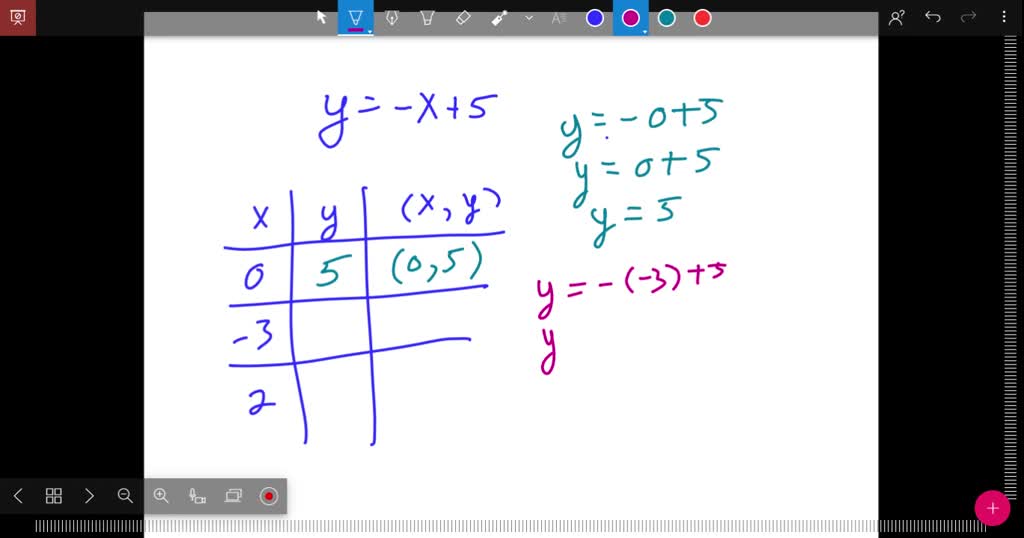 y = -x+5
x y (x, y)
0 5 (0, 5)
-3
2
y = -0+5
y = 0+5
y = 5
y = -(-3)+5
y